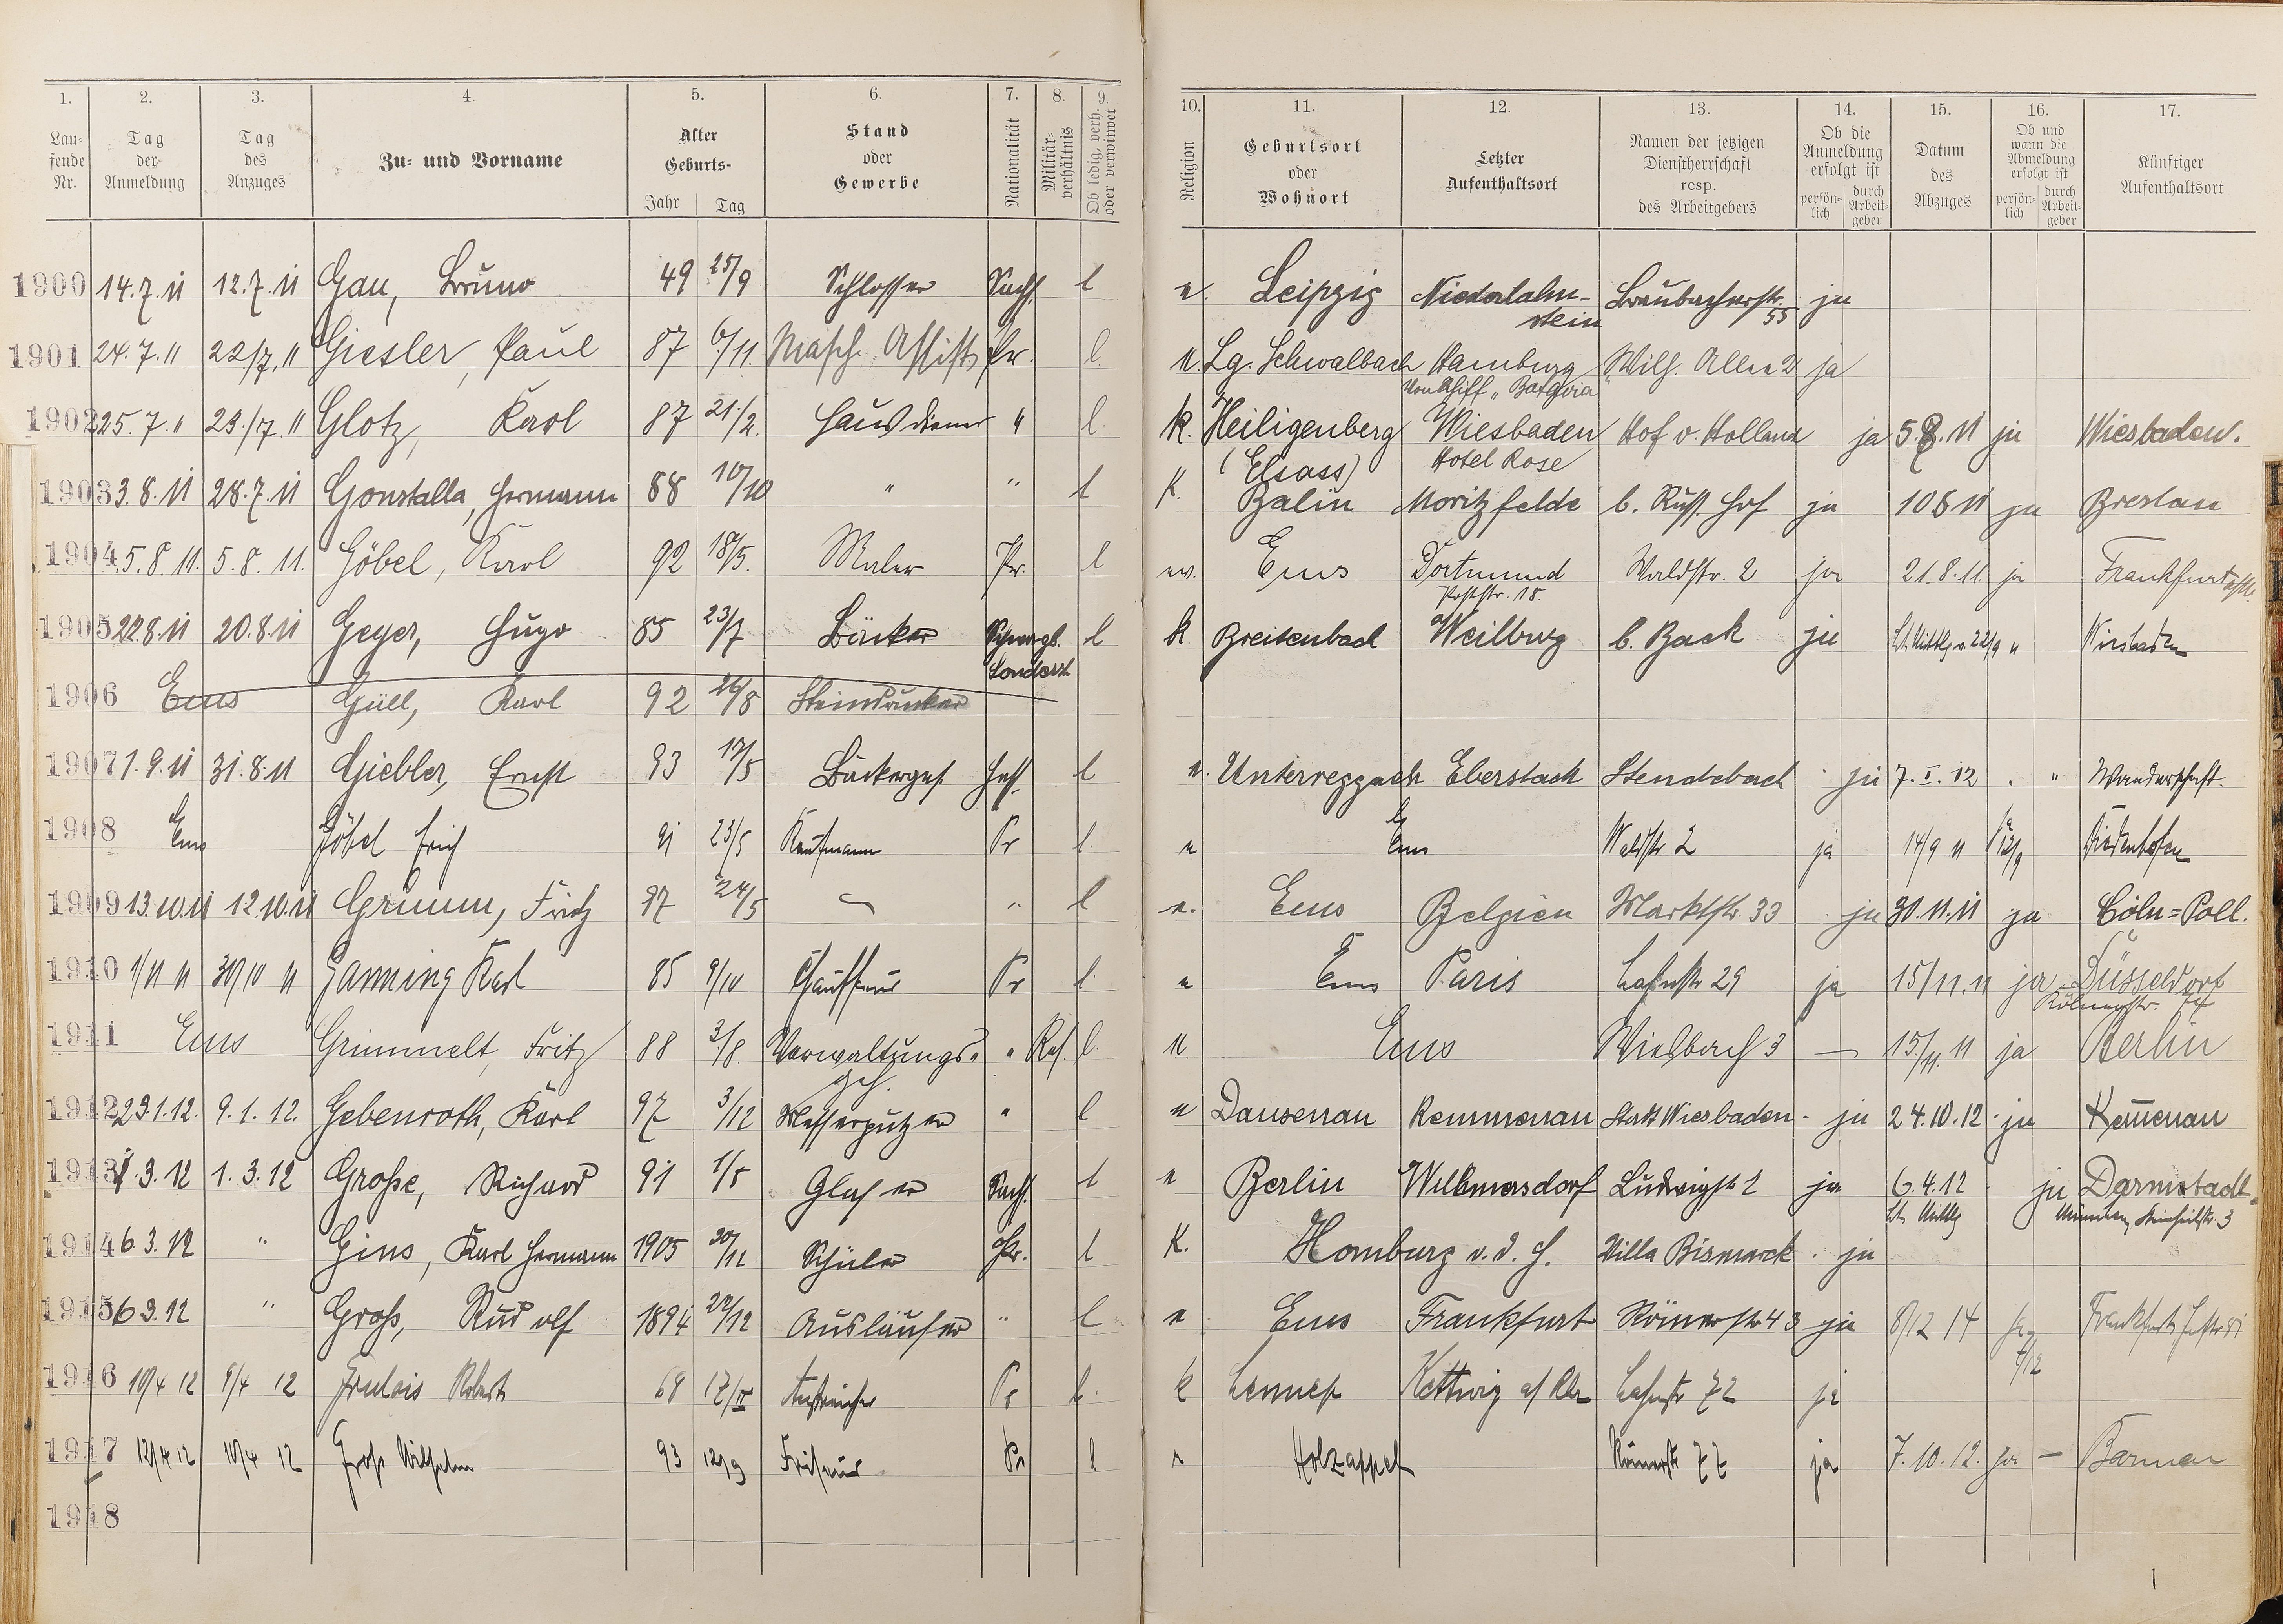 1. 2. 3. 4. 5. 6. 7. 8. 9. 10. 11. 12. 13. 14. 15. 16. 17.
Laufende Nr.
Tag der Anmeldung
Tag des Anzuges
Zu- und Vorname
Alter Geburts-
Jahr Tag
Stand oder Gewerbe
Nationalität
Militärverhältnis
Ob ledig, verh. oder verwitwet
Religion
Geburtsort oder Wohnort
Letzter Aufenthaltsort
Namen der jetzigen Dienstherrschaft resp. des Arbeitgebers
Ob die Anmeldung erfolgt ist
persönlich durch Arbeitgeber
Datum des Abzuges
Ob und wann die Abmeldung erfolgt ist
persönlich durch Arbeitgeber
Künftiger Aufenthaltsort
1900 14.7.11 12.7.11 Gau, Bruno 49 25/9 Schlosser Sachs. l Leipzig Niederlahnstein Braubacherstr. 55 ja
1901 24.7.11 22/7.11 Giesler, Paul 87 6/11. Masch. Assist. Pr. l. Lg. Schwalbach Hamburg Wilh. Allee 2 ja
von Schiff "Batavia"
1902 25.7.11 23./7.11 Glotz, Karl 87 21./2. Hausdiener " l. K. Heiligenberg Wiesbaden Hof v. Holland ja 5.8.11 ja Wiesbaden.
(Elsass) Hotel Rose
1903 3.8.11 28.7.11 Gonstalla, Hermann 88 10/10 " " l K. Balin Moritzfelde b. Russ. Hof ja 10 8 11 ja Breslau
1904 5.8.11. 5.8.11. Göbel, Karl 92 18/5. Maler Pr. l ev. Ems Dortmund Waldstr. 2 ja 21.8.11 ja Frankfurt a/M.
Poststr. 18.
1905 22.8.11 20.8.11 Geyer, Hugo 85 23/7 Bäcker Schwarzb. Sondersh l k Breitenbach Weilburg b. Back ja Lt. Mittlg v. 22/9 11 Wiesbaden
1906 Ems Güll, Karl 92 26/8 Steindrucker
1907 1.9.11 31.8.11 Giebler, Ernst 93 17/5 Bäckerges. Hess. l Eberstadt ja 7.I.12 " Wanderschaft.
1908 Ems Göbel Erich 91 23/5 Kaufmann Pr l Ems Waldstr 2 ja 14/9 11 Diedenhofen
1909 13.10.11 12.10.11 Grimm, Fritz 97 24/5 " l Ems Belgien Marktstr. 33 ja 30.11.11 ja Cöln=Poll.
1910 1/11 11 30/10 11 Ganning Karl 85 9/10 Chauffeur Pr l. Ems Paris Lahnstr 29 ja 15/11.11 ja Düsseldorf
Kölnerstr.
1911 Ems Grimmelt, Fritz 88 3./8. Verwaltungs-geh. " Res. l. Ems Wiesbach 3 — 15./11. 11 ja Berlin
1912 23.1.12. 9.1.12. Gebenroth, Karl 97 3/12 Messerputzer " l Dausenau Kemmenau Stadt Wiesbaden ja 24.10.12 ja Kemenau
1913 1.3.12 1.3.12 Große, Richard 91 1/5 Glaser Sachs. l Berlin Wilmersdorf Ludwigstr 2 ja 6.4.12 ja Darmstadt
Lt. Mittlg München,
1914 6.3.12 " Gins, Karl Hermann 1905 30/11 Schüler Pr. l K. Homburg v.d.H. Villa Bismarck ja
1915 6 3.12 " Groß, Rudolf 1894 22/12 Ausläufer " l Ems Frankfurt Römerstr 43 ja 8/12 14 ja Frankfurt
1916 10/4 12 9/4 12 Robert 68 12/IV Anstreicher Pr l. k Lennep Kettwig a/Rh Lahnstr 72 ja
1917 12/4 12 10/4 12 Groß Wilhelm 93 12/9 Friseur Pr l Holzappel Römerstr 77 ja 7.10.12. ja — Barmen
1918